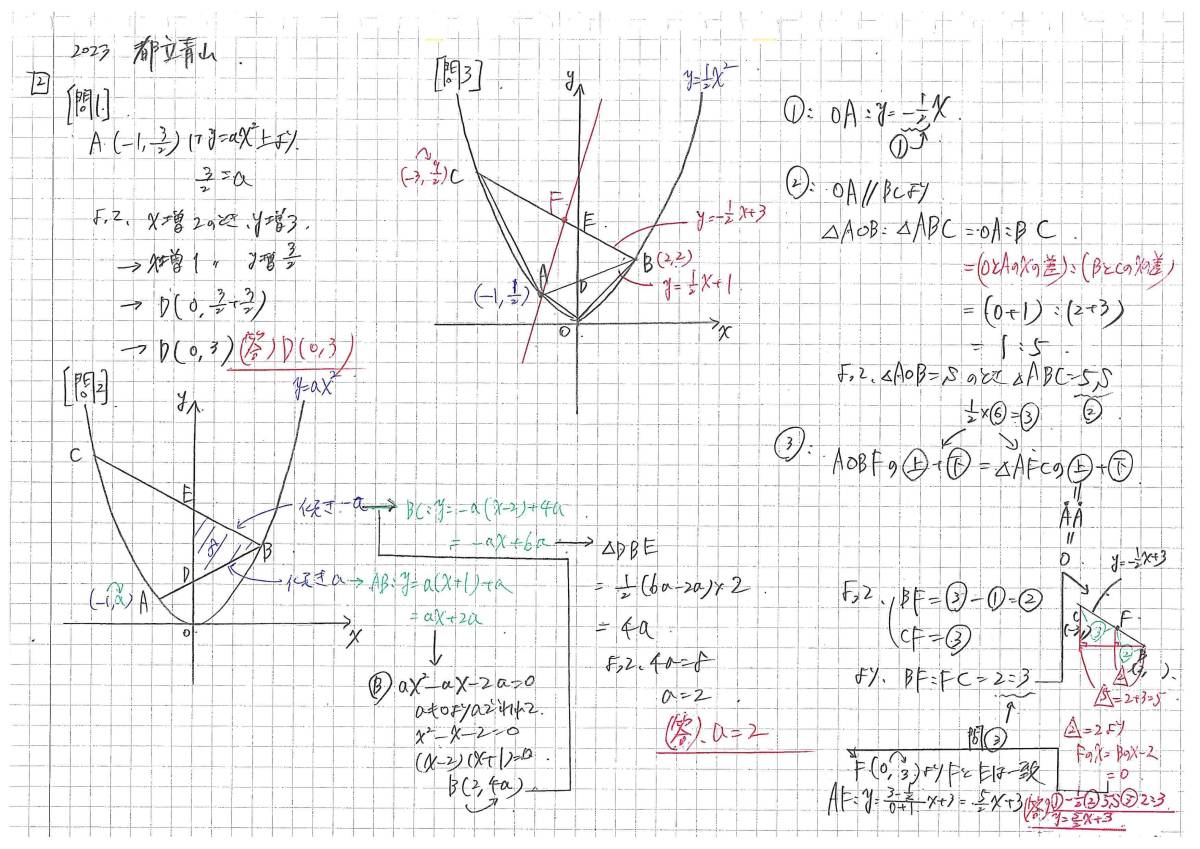 2023 都立青山.
2
[問1.]
A(-1, 3/2)はy=ax²上より.
3/2=a
よって, x増2のとき, y増3.
→x増1 〃 y増3/2
→D(0, 3/2+3/2)
→D(0, 3) (答) D(0, 3)
[問2]
y=ax²
y
C
E
8
D
B
(-1, a) A
O
x
傾き-a→BC: y=-a(x-2)+4a
=-ax+6a
傾きa→AB: y=a(x+1)+a
=ax+2a
Ⓑ ax²-ax-2a=0
a≠0よりaでわって.
x²-x-2=0
(x-2)(x+1)=0
B(2, 4a)
△DBE
=1/2(6a-2a)×2
=4a
よって, 4a=8
a=2
(答). a=2
[問3]
y
y=1/2x²
(-3, 9/2) C
F
E
y=-1/2x+3
B(2,2)
A
D
(-1, 1/2)
y=1/2x+1
O
x
①: OA: y=-1/2x.
①
②: OA//BCより
△AOB: △ABC=OA:BC
=(OとAのxの差):(BとCのxの差)
=(0+1):(2+3)
=1:5.
よって, △AOB=Sのとき△ABC=5S
1/2×⑥=③ ②
③: AOBFの上+下=△AFCの上+下
よって, BF=③-①=②
CF=③
より, BF:FC=2:3
問③
y=-1/2x+3
C
F
③
②
B
△5=2+3=5
△2=2より
Fのx=Bのx-2
=0
F(0, 3)よりFとEは一致
AF: y=(3-1/2)/(0+1)x+3=5/2x+3 (答)①-1/2②5S③2:3
y=5/2x+3